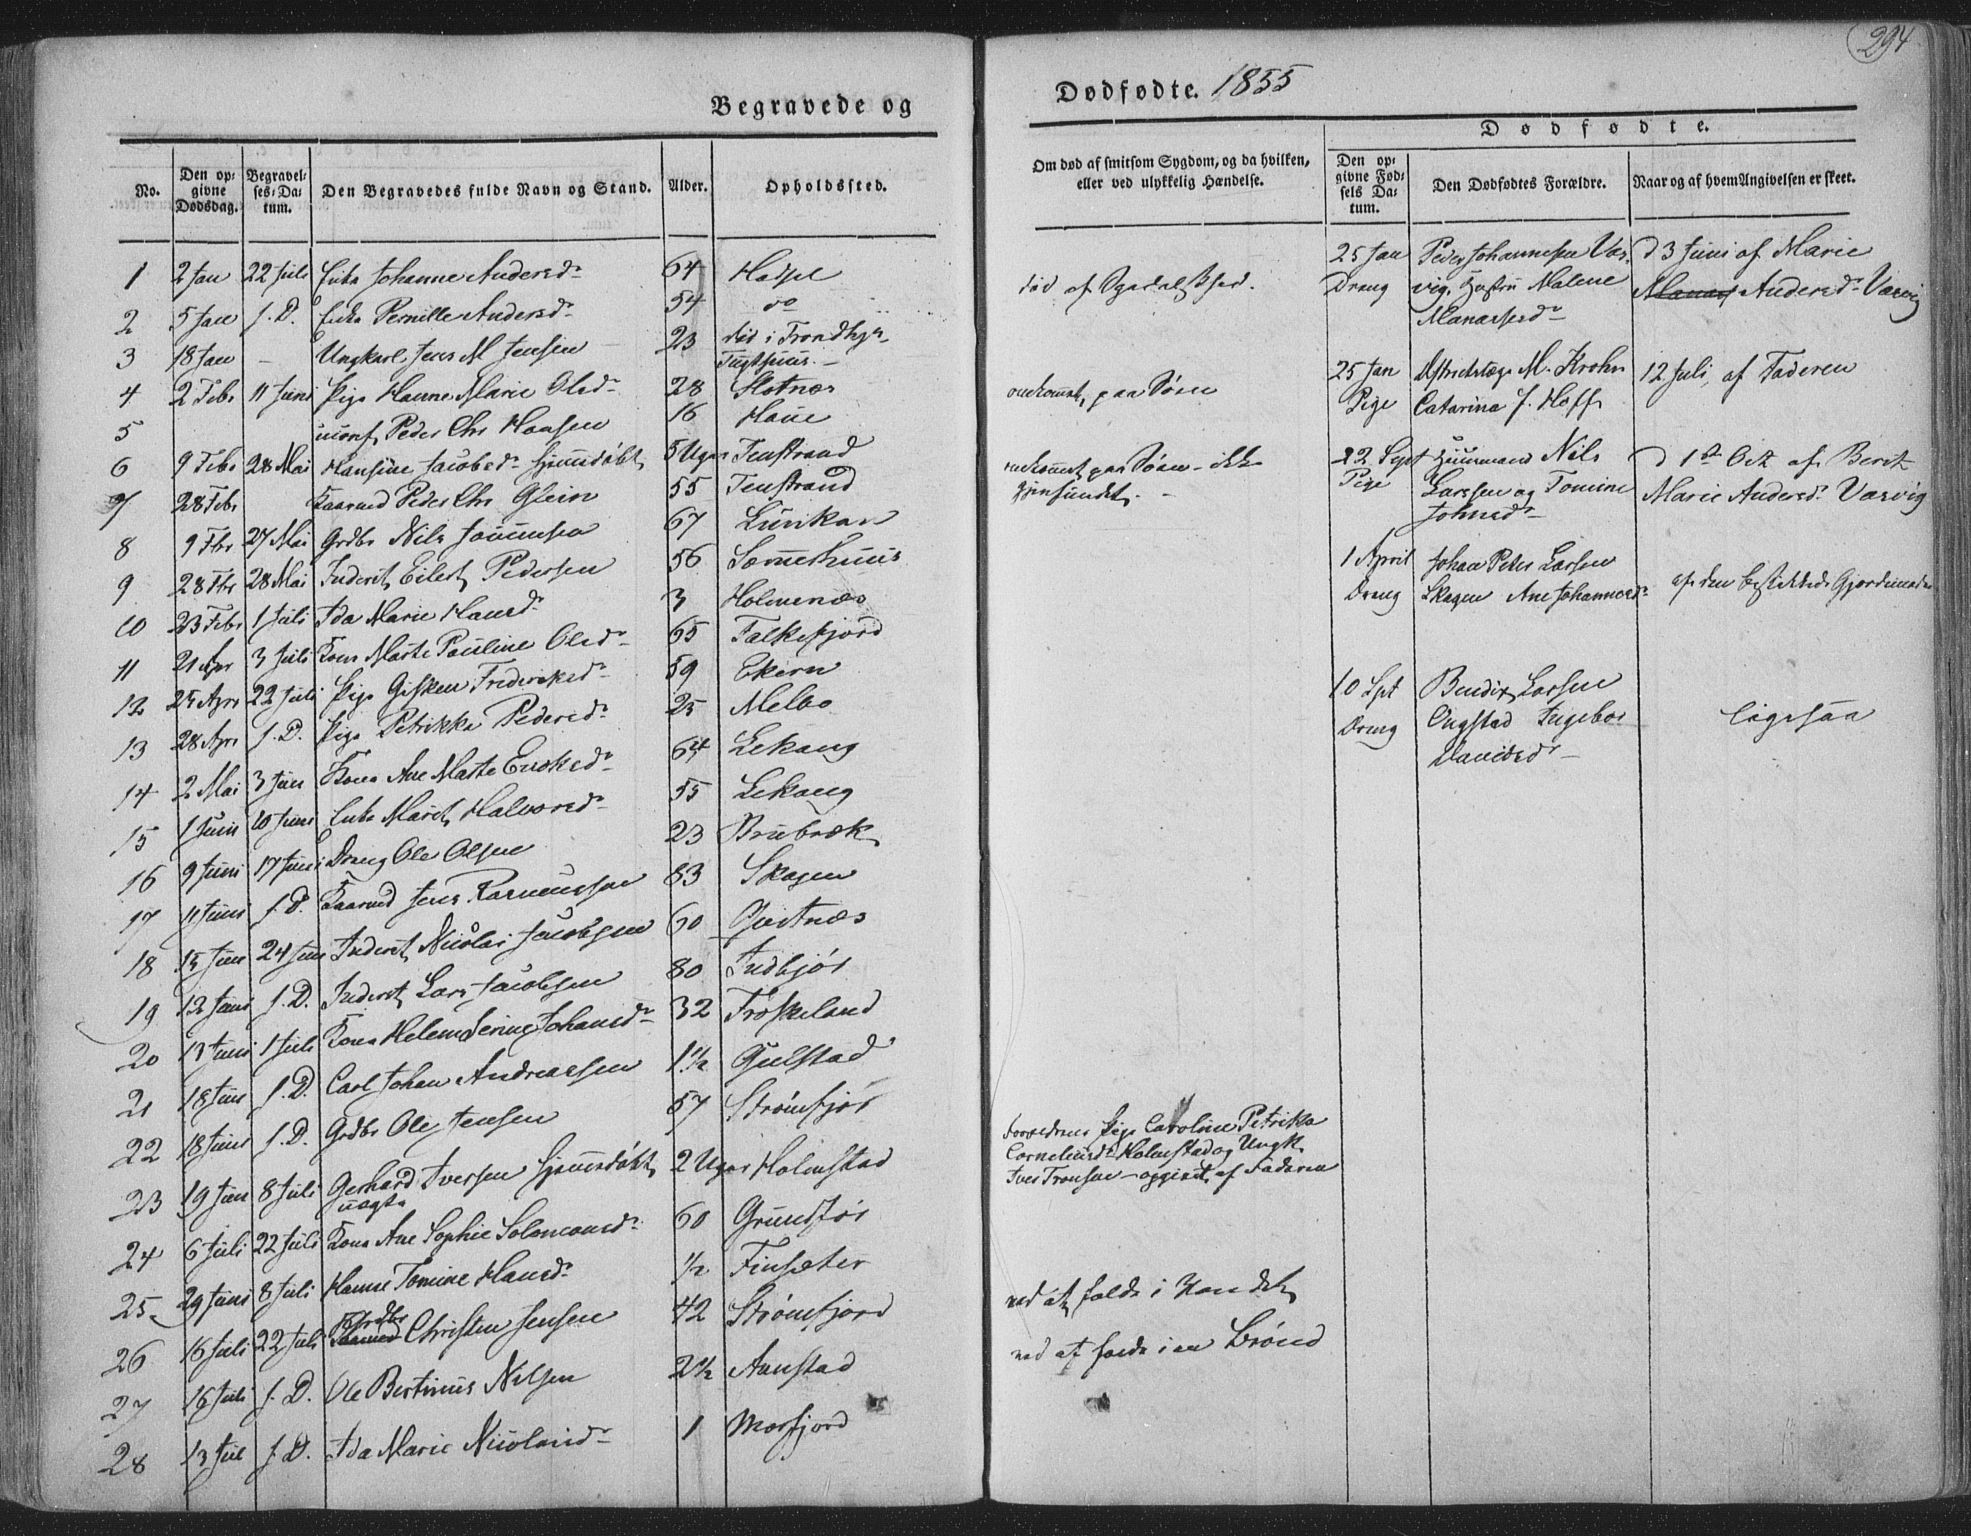 294
Begravede og
Dødfødte. 1855
No.
Den opgivne Dødsdag.
Begravelses-Datum.
Den Begravedes fulde Navn og Stand.
Alder.
Opholdssted.
Om død af smitsom Sygdom, og da hvilken,
eller ved ulykkelig Hændelse.
Dødfødte.
Den opgivne Fødsels Datum.
Den Dødfødtes Forældre.
Naar og af hvem Angivelsen er skeet.
1 2 Jan 22 Juli Enke Johanne Andersdr 64 Hadsel
2 5 Jan s. D. Enke Pernille Andersdr 54 do
3 18 Jan – Ungkarl Jens M Jensen 23 død i Trondhjs
Tugthuus –
4 2 Febr 11 Juni Pige Hanne Marie Olsd 28
5 Peder Chr Hansen 16
6 9 Febr 28 Mai Hansine Jacobsdr hjemmedøbt 5 Uger Tenstrand
7 28 Febr Kaarmd Peder Chr 55 Tenstrand
8 9 Fbr 27 Mai Grdbr Nils 67
9 28 Fbr 28 Mai Inderst Eilert Pedersen 56
10 23 Febr 1 Juli Ida Marie Hansdr 3 Holmenæs
11 21 Apr 3 Juli Kone Marte Pauline Olsdr 65 Falkefjord
12 25 Apr 22 Juli Pige Gisken Frederiksdr 59 Ekern
13 28 Apr s. D. Pige Petrikka Pedersdr 25 Melbo
14 2 Mai 3 Juni Kone Ane Marte 64 Lekang
15 1 Juni 10 Juni Enke Marit Halvorsdr 55 Lekang
16 9 Juni 17 Juni Dreng Ole Olsen 23
17 11 Juni s. D. Kaarmd Jens Rasmussen 83 Skagen
18 15 Juni 24 Juni Inderst Nicolai Jacobsen 60
19 12 Juni s. D. Inderst Lars Jacobsen 80
20 13 Juni 1 Juli Kone Helene Serine Johansdr 32 Frøskeland
21 18 Juni s. D. Carl Johan Andreassen 1½ Gulstad
22 18 Juni s. D. Grdbr Ole Jensen 57 Strømfjor
23 19 Juni 8 Juli Gerhard Iversen hjemmedøbt 2 Uger Holmstad
uægte
24 6 Juli 22 Juli Kone Ane Sophie Solomonsdr 60 Grundfør
25 29 Juni 8 Juli Hanne Tomine Hansdr ½ Finsæter
26 16 Juli 22 Juli Christen Jensen 42 Strømfjord
27 16 Juli s. D. Ole Bertinus Nilsen 2½ Aanstad
28 13 Jul s. D. Ida Marie 1 Morfjord
død af
omkommet paa Søen
omkommet paa Søen – ikke
gjenfundet. –
Forældrene Pige Caroline Petrikka
Corneliusdr Holmstad og Ungk.
Iver Tronsen – opgivet af Faderen
ved at falde i Vandet
ved at falde i en Brønd
25 Jan Peder Johannesen Var- d 3 Juni af Marie
Dreng vig, Hustru Malene Andersdr Varvig
Manassesdr
25 Jan Distrikslæge M. Krohn 12 Juli, af Faderen
Pige Catarina f. Hoff
22 Sept Huusmand Nils d 1st Oct af Berit
Pige Larssen og Tomine Marie Andersdr Varvig
Johnsdr
1 April Johan Peter Larsen af den beskikkede Gjordemoder
Dreng Skagen Ane Johannesdr
10 Spt Bendix Larsen
Dreng Ongstad Ingebor ligesaa
Davidsdr –